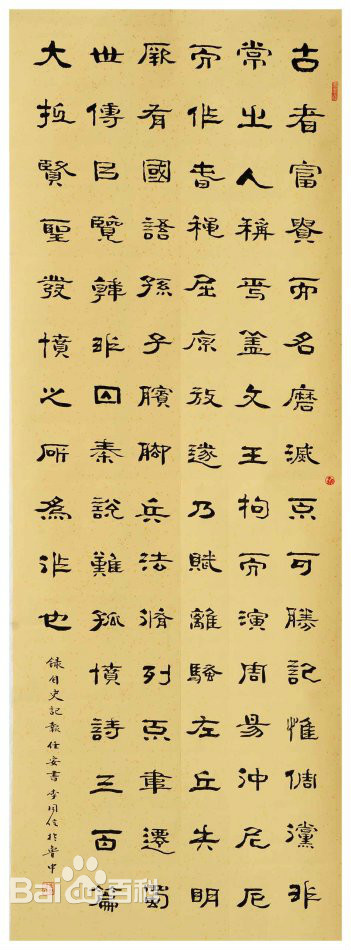 古者富貴而名磨滅不可勝記惟倜儻非
常之人稱焉蓋文王拘而演周易仲尼厄
而作春秋屈原放逐乃賦離騷左丘失明
厥有國語孫子臏腳兵法脩列不韋遷蜀
世傳呂覽韓非囚秦說難孤憤詩三百篇
大抵賢聖發憤之所為作也
錄自史記報任安書李信於晉中
Bai百科